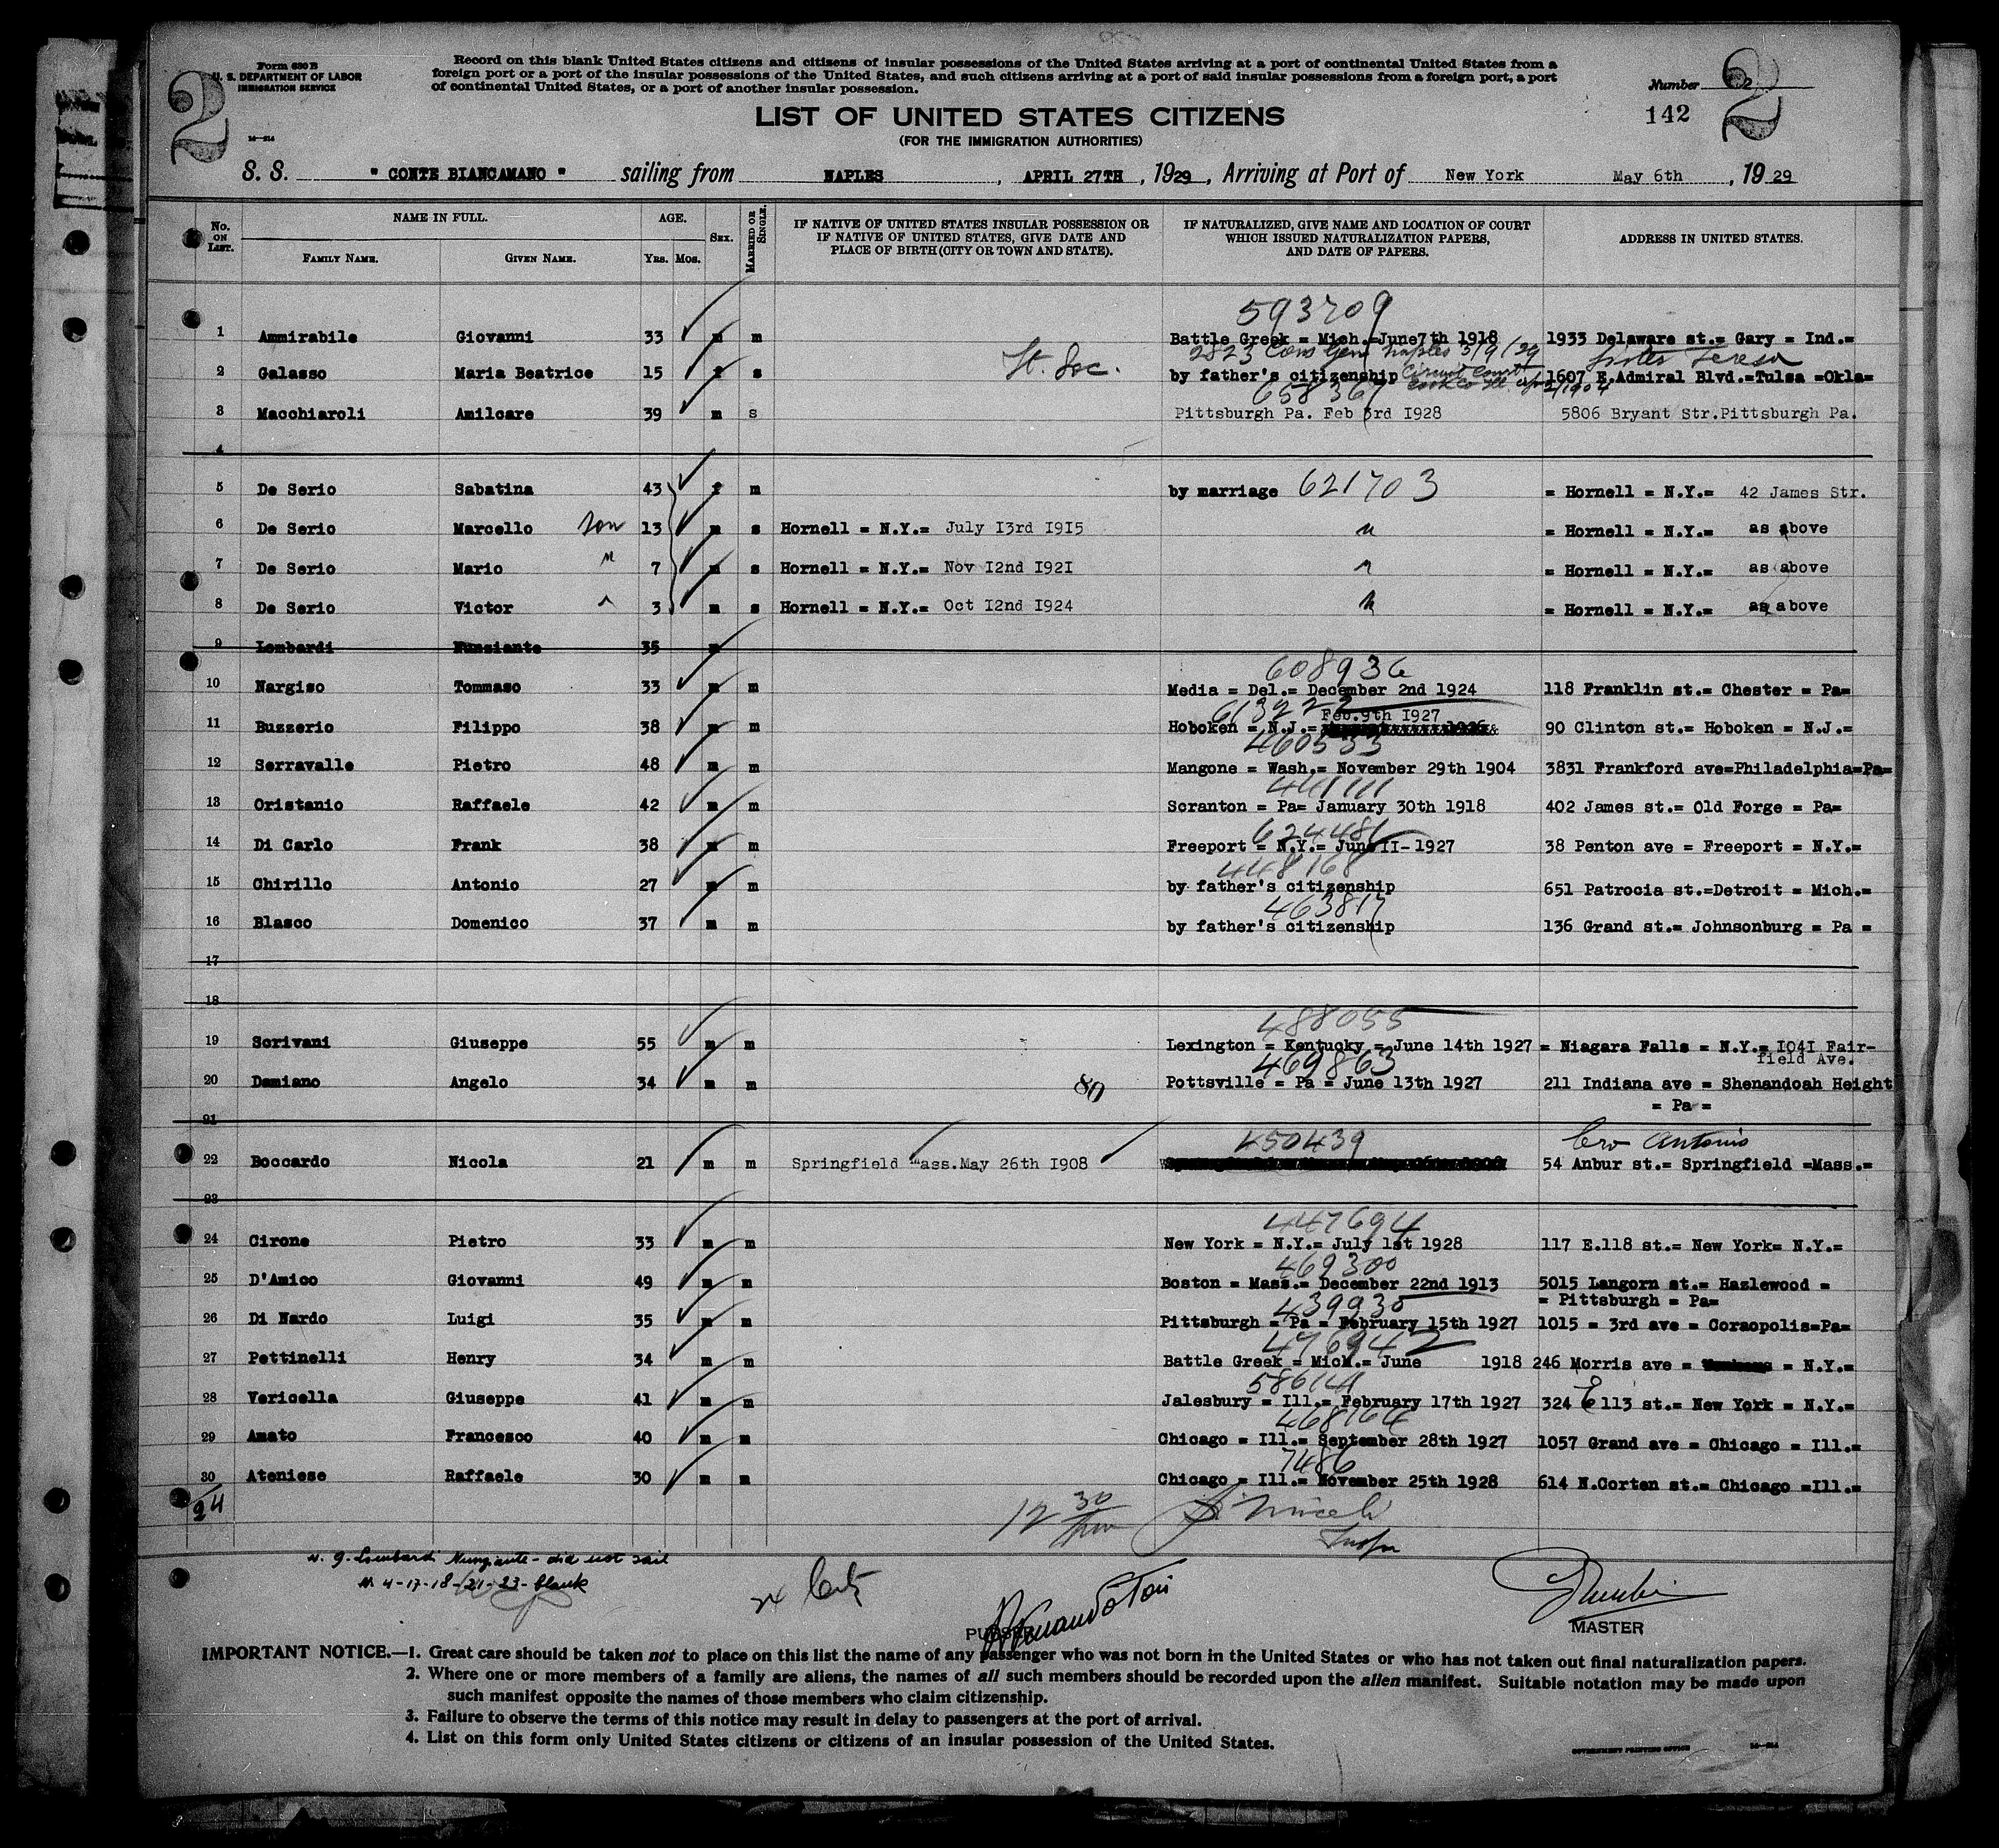 Form 630 B
U. S. DEPARTMENT OF LABOR
IMMIGRATION SERVICE
2
14—214
Record on this blank United States citizens and citizens of insular possessions of the United States arriving at a port of continental United States from a
foreign port or a port of the insular possessions of the United States, and such citizens arriving at a port of said insular possessions from a foreign port, a port
of continental United States, or a port of another insular possession.
Number 2
142
2
LIST OF UNITED STATES CITIZENS
(FOR THE IMMIGRATION AUTHORITIES)
S. S. " CONTE BIANCAMANO " sailing from NAPLES , APRIL 27TH , 1929 , Arriving at Port of New York May 6th , 19 29
No. ON LIST. NAME IN FULL. FAMILY NAME. GIVEN NAME. AGE. YRS. MOS. SEX. MARRIED OR SINGLE. IF NATIVE OF UNITED STATES INSULAR POSSESSION OR IF NATIVE OF UNITED STATES, GIVE DATE AND PLACE OF BIRTH (CITY OR TOWN AND STATE). IF NATURALIZED, GIVE NAME AND LOCATION OF COURT WHICH ISSUED NATURALIZATION PAPERS, AND DATE OF PAPERS. ADDRESS IN UNITED STATES.
593709
1 Ammirabile Giovanni 33 m m Battle Greek = Mich.=June7th 1918 1933 Delaware st.= Gary = Ind.=
2823 Cons Gen Naples 3/9/29 sister Teresa
2 Galasso Maria Beatrice 15 f s St. Soc. by father's citizenship Circuit Court Cook Co Ill. 1607 E.Admiral Blvd.=Tulsa =Okla=
658367
3 Macchiaroli Amilcare 39 m s Pittsburgh Pa. Feb 3rd I928 5806 Bryant Str.Pittsburgh Pa.
4
5 De Serio Sabatina 43 f m by marriage 621703 = Hornell = N.Y.= 42 James Str.
6 De Serio Marcello son 13 m s Hornell = N.Y.= July I3rd I9I5 " = Hornell = N.Y.= as above
7 De Serio Mario " 7 m s Hornell = N.Y.= Nov I2nd I92I " = Hornell = N.Y.= as above
8 De Serio Victor " 3 m s Hornell = N.Y.= Oct I2nd I924 " = Hornell = N.Y.= as above
9 Lombardi Nunziante 35 m
608936
10 Nargiso Tommaso 33 m m Media = Del.= December 2nd 1924 118 Franklin st.= Chester = Pa=
613222 Feb.9th I927
11 Buzzerio Filippo 38 m m Hoboken = N.J.= 90 Clinton st.= Hoboken = N.J.=
460533
12 Serravalle Pietro 48 m m Mangone = Wash.= November 29th 1904 3831 Frankford ave=Philadelphia=Pa=
13 Oristanio Raffaele 42 m m Scranton = Pa= January 30th 1918 402 James st.= Old Forge = Pa=
624486
14 Di Carlo Frank 38 m m Freeport = N.Y.= June II- 1927 38 Penton ave = Freeport = N.Y.=
448168
15 Chirillo Antonio 27 m m by father's citizenship 651 Patrocia st.=Detroit = Mich.=
463817
16 Blasco Domenico 37 m m by father's citizenship 136 Grand st.= Johnsonburg = Pa =
17
18
488055
19 Scrivani Giuseppe 55 m m Lexington = Kentucky = June 14th 1927 = Niagara Falls = N.Y.= I04I Fair-
field Ave.
469863
20 Damiano Angelo 34 m m 80 Pottsville = Pa = June 13th 1927 211 Indiana ave = Shenandoah Height
= Pa =
21
450439 Bro Antonio
22 Boccardo Nicola 21 m m Springfield Mass.May 26th I908 54 Anbur st.= Springfield =Mass.=
23
447694
24 Cirone Pietro 33 m m New York = N.Y.= July 1st 1928 117 E.118 st.= New York= N.Y.=
469300
25 D'Amico Giovanni 49 m m Boston = Mass.= December 22nd 1913 5015 Langorn st.= Hazlewood =
= Pittsburgh = Pa=
439930
26 Di Nardo Luigi 35 m m Pittsburgh = Pa = February 15th 1927 1015 = 3rd ave = Coraopolis=Pa=
476942
27 Pettinelli Henry 34 m m Battle Greek = Mich.= June 1918 246 Morris ave = = N.Y.=
28 Vericella Giuseppe 41 m m Jalesbury = Ill.= February 17th 1927 324 E 113 st.= New York = N.Y.=
468164
29 Amato Francesco 40 m m Chicago = Ill.= September 28th 1927 1057 Grand ave = Chicago = Ill.=
7486
30 Ateniese Raffaele 30 m m Chicago = Ill.= November 25th 1928 614 N.Corten st.= Chicago =Ill.=
24
12 30 pm
Inspr
N. 9-Lombardi Nunziante - did not sail
N 4-17-18-21-23-blank
24 Cits
PURSER
MASTER
IMPORTANT NOTICE.—1. Great care should be taken not to place on this list the name of any passenger who was not born in the United States or who has not taken out final naturalization papers.
2. Where one or more members of a family are aliens, the names of all such members should be recorded upon the alien manifest. Suitable notation may be made upon
such manifest opposite the names of those members who claim citizenship.
3. Failure to observe the terms of this notice may result in delay to passengers at the port of arrival.
4. List on this form only United States citizens or citizens of an insular possession of the United States.
GOVERNMENT PRINTING OFFICE 14—214